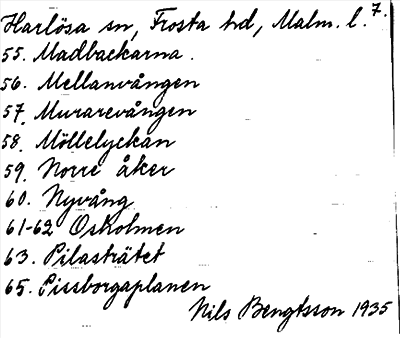 Harlösa sn, Frosta hd, Malm. l. 7.
55. Madbackarna.
56. Mellanvången
57. Murarevången
58. Möllelyckan
59. Norre åker
60. Nyvång
61-62 Oskolmen
63. Pilasträtet
65. Pissborgaplanen
Nils Bengtsson 1935